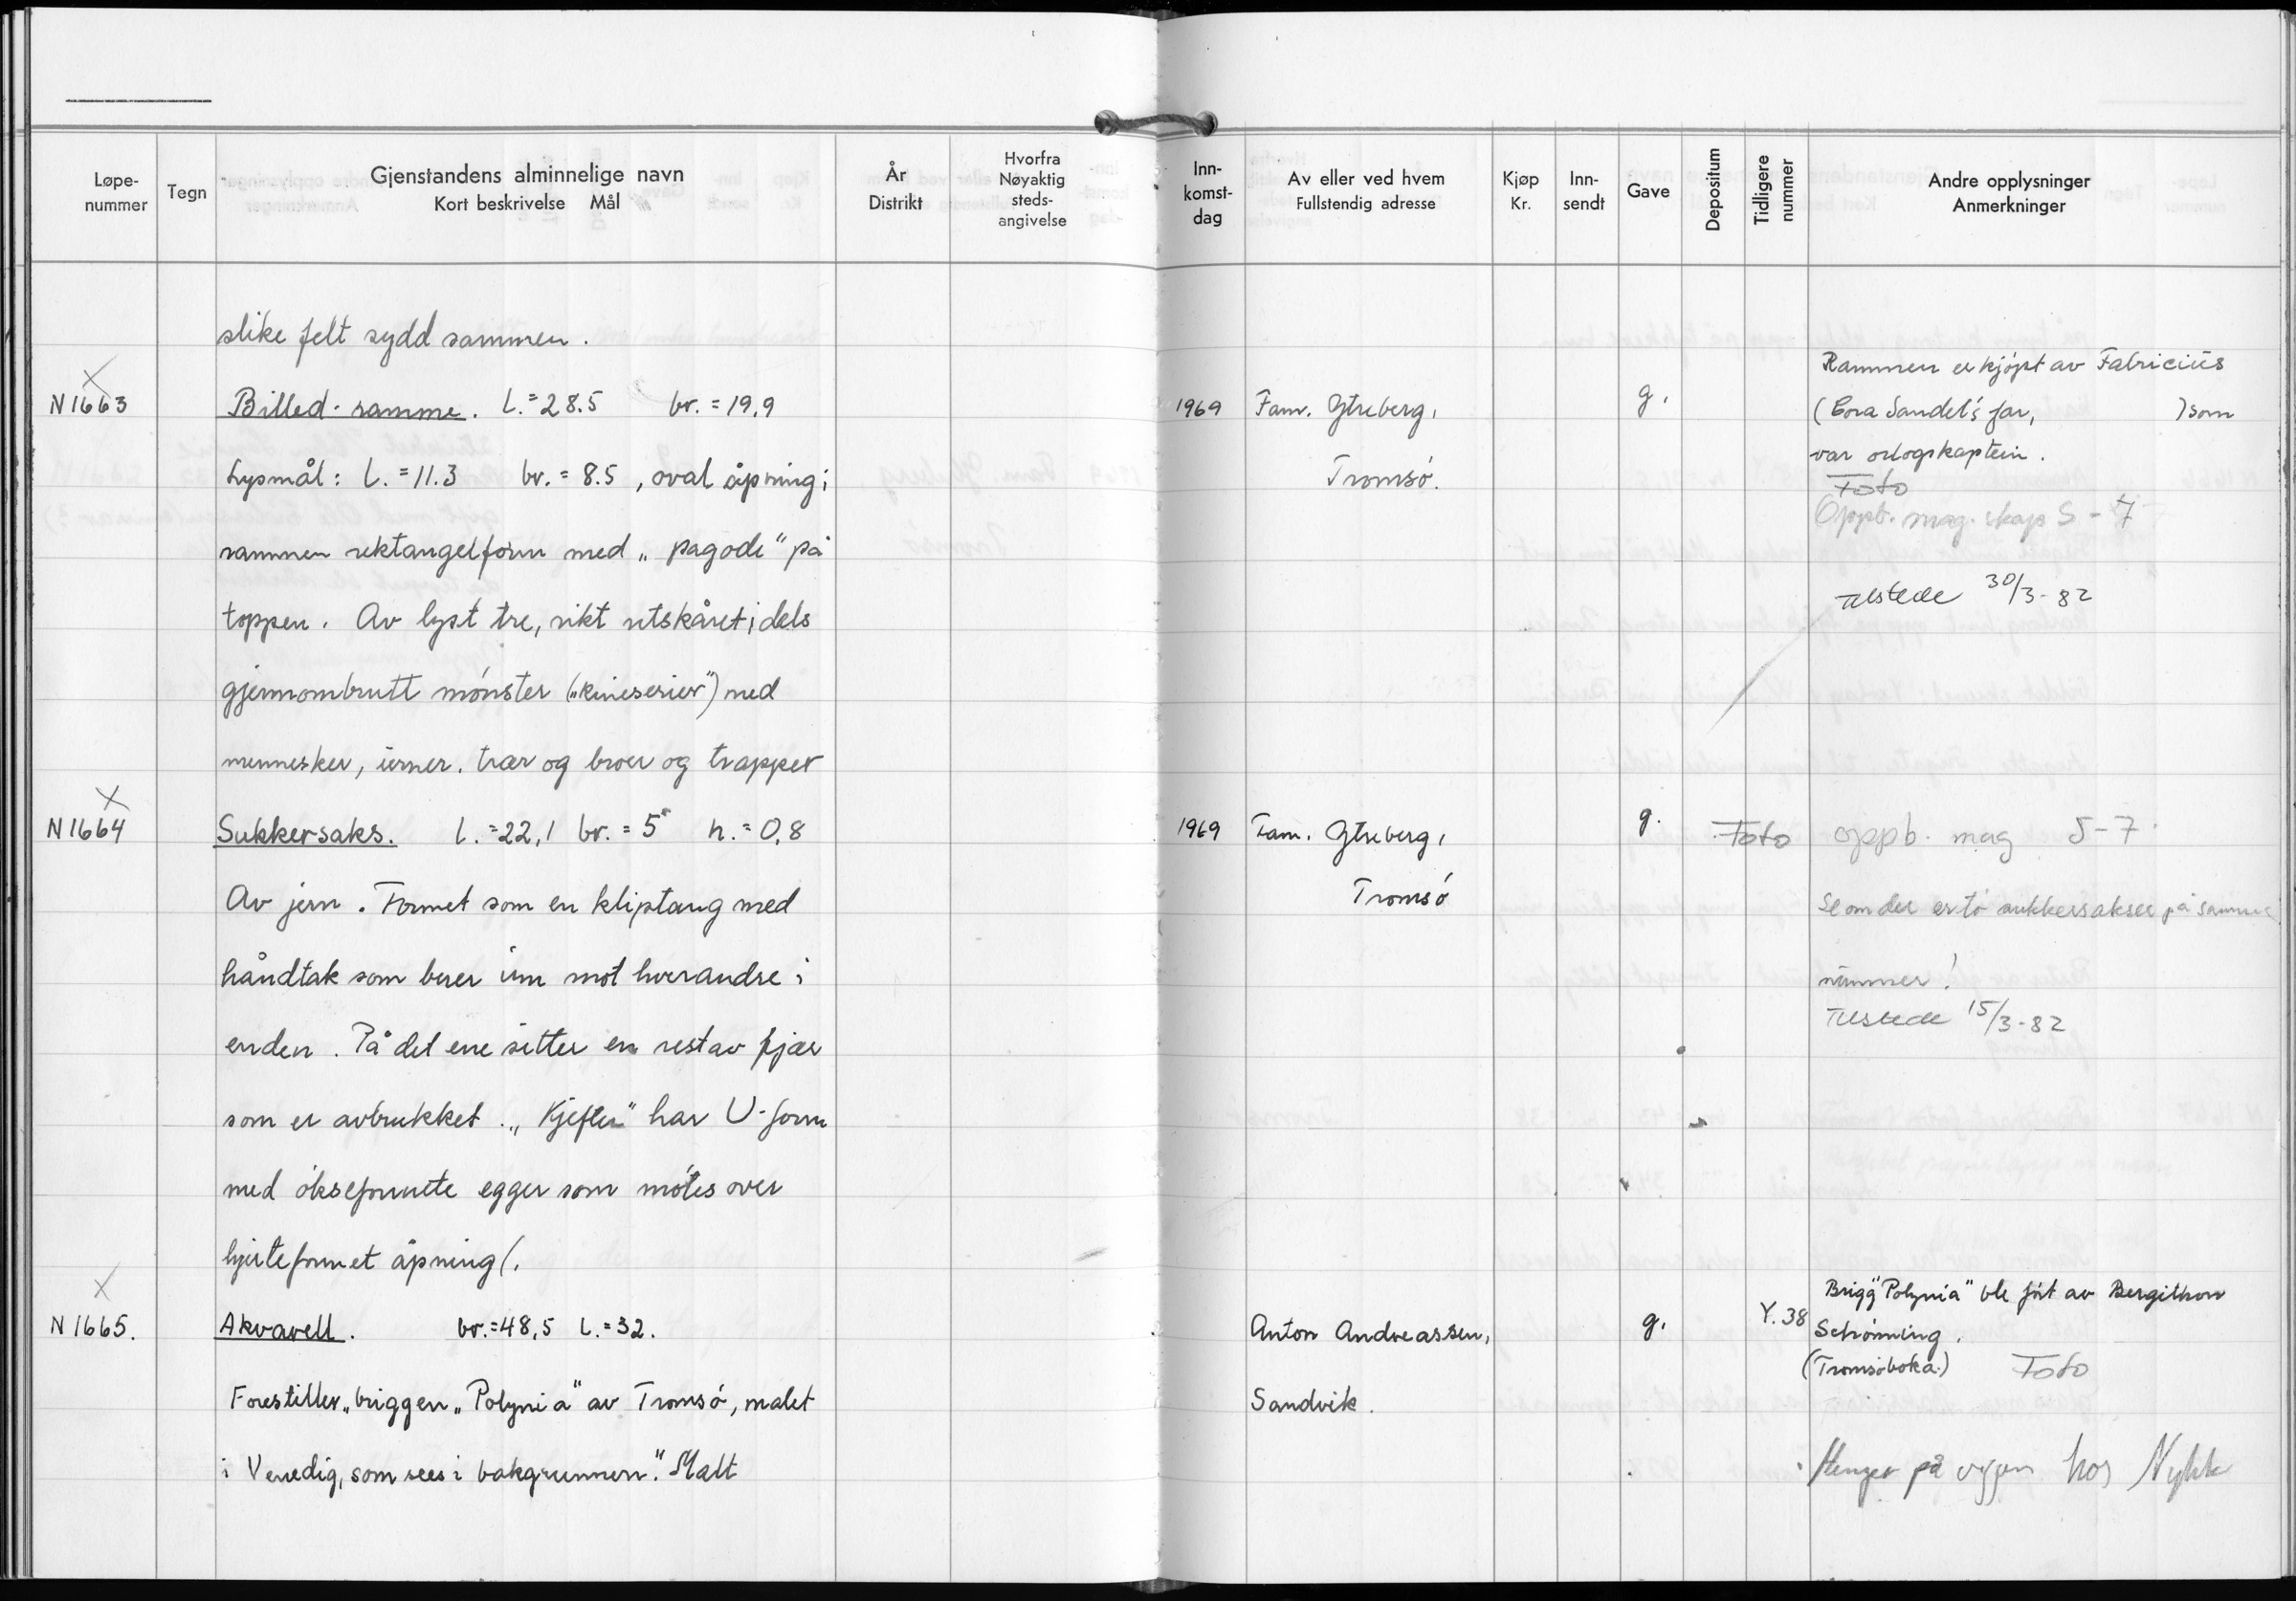 Løpe-
nummer
Tegn
Gjenstandens alminnelige navn
Kort beskrivelse Mål
År
Distrikt
Hvorfra
Nøyaktig
steds-
angivelse
Inn-
komst-
dag
Av eller ved hvem
Fullstendig adresse
Kjøp
Kr.
Inn-
sendt
Gave
Depositum
Tidligere
nummer
Andre opplysninger
Anmerkninger
slike felt sydd sammen.
N1663
Billed-ramme. L.=28.5 br.=19,9
Lysmål: L.=11.3 br.=8.5, oval åpning i
rammen rektangelform med „pagode" på
toppen. Av lyst tre, rikt utskåret i dels
gjennombrutt mønster („kineserier") med
mennesker, urner. trær og broer og trapper
1969 Fam. Ytreberg,
Tromsø.
g.
Rammen er kjøpt av Fabricius
(Cora Sandel's far, ) som
var orlogskaptein.
Foto
Oppb. mag. skap S-7
Tilstede 30/3-82
N1664
Sukkersaks. L.=22,1 br.=5 h.=0,8
Av jern. Formet som en kliptang med
håndtak som bøyer inn mot hverandre i
enden. På det ene sitter en rest av fjær
som er avbrukket. „Kjeften" har U-form
med øksefirmete egger som møtes over
hjerteformet åpning.
1969 Fam. Ytreberg,
Tromsø
g.
Foto oppb. mag S-7
Se om der er to sukkersakser på samme
nummer!
Tilstede 15/3-82
N1665.
Akvarell. br.=48,5 L.=32.
Forestiller „briggen „Polynia" av Tromsø, malet
i Venedig, som sees i bakgrunnen." Malt
Anton Andreassen,
Sandvik.
g.
Y.38
Brigg "Polynia" ble ført av Bergithon
Schrønning.
(Tromsøboka.) Foto
Henger på veggen hos Nykk